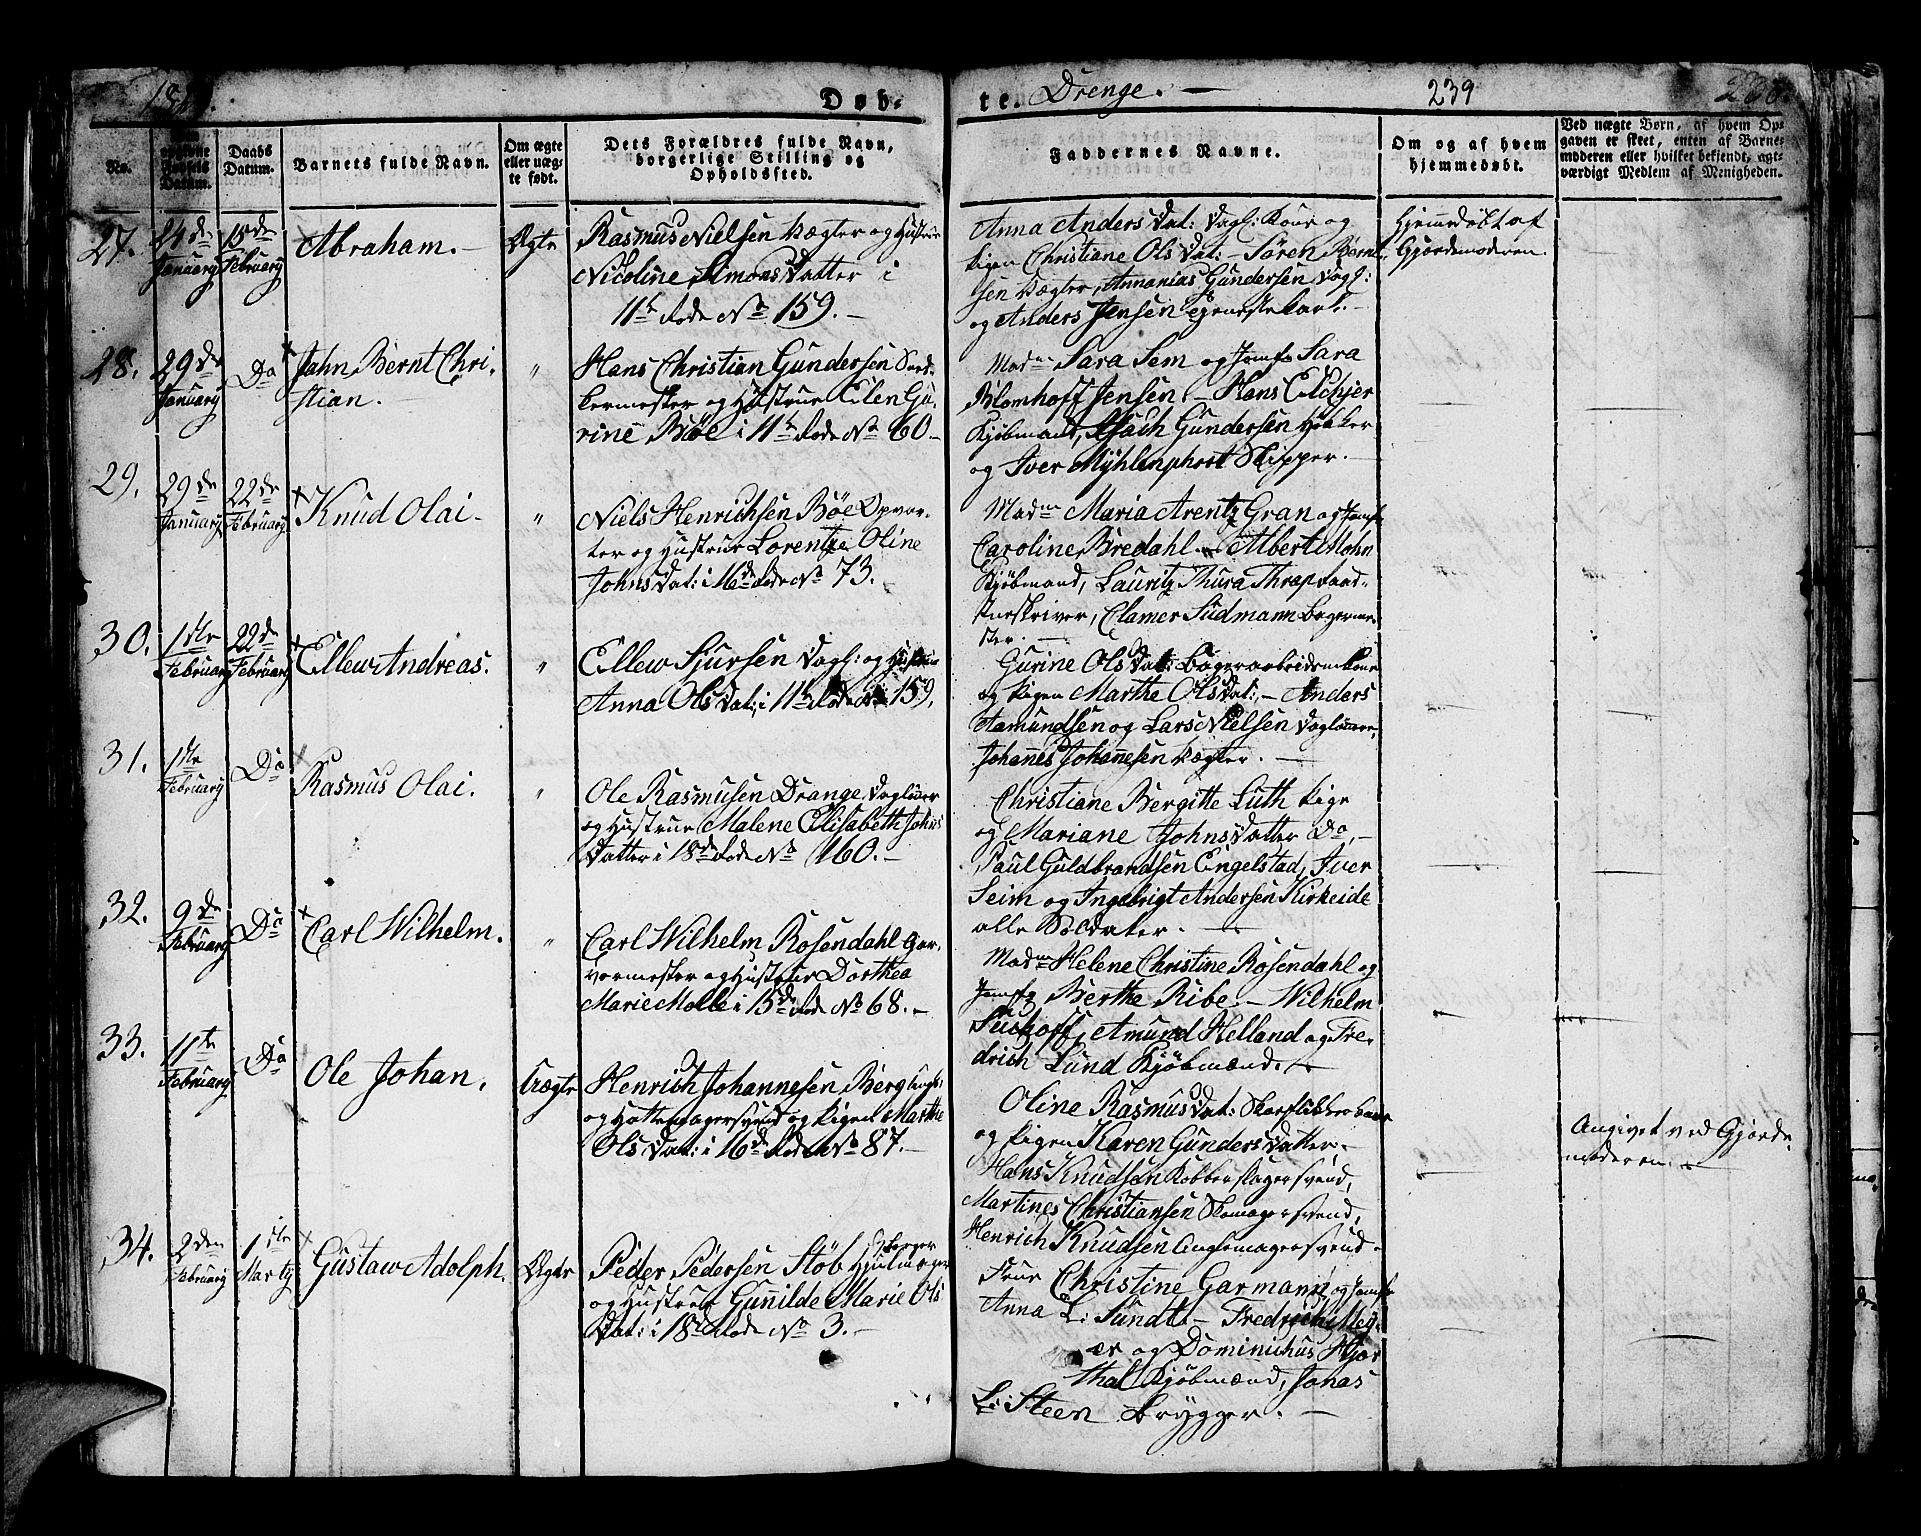 Døb-
te. Drenge. —
239
No.
Daabs
Datum.
Barnets fulde Navn.
Om ægte
eller uæg-
te født.
Dets Forældres fulde Navn,
borgerlige Stilling og
Opholdssted.
Faddernes Navne.
Om og af hvem
hjemmedøbt.
Ved uægte Børn, af hvem Op-
gaven er skeet, enten af Barne-
moderen eller hvilket bekjendt, agt-
værdigt Medlem af Menigheden.
27.
24de
January
15de
February
Abraham. —
Ægte
Rasmus Nielsen Vægter og Hustrue
Nicoline Simons Datter i
11te Rode No 159. —
Anna Anders Dat: Dagl: Kone og
Pigen Christiane Ols Dat: — Søren Bernt
sen Vægter, Annanias Gundersen Dagl:
og Anders Jensen
Hjemmedøbt af
Gjordemoderen.
28.
29de
January
Do
Jahn Bernt Chri-
stian. —
"
Hans Christian Gundersen
kermester og Hustrue Ellen Gu-
rine Bøe i 11te Rode No 60 —
Madme Sara Sem og Jomfr Sara
Blomhoff Jensen — Hans Eilchjer
Kjøbmand, Isach Gundersen Høkker
og Iver Myhlenphort Skipper. —
29.
29de
January
22de
February
Knud Olai —
"
Niels Henrichsen Bøe Opvar-
ter og Hustrue Lorentze Oline
Johns Dat: i 16de Rode No 73. —
Madme Maria Arentz Gran og Jomfr
Caroline Bredahl — Albert Mohn
Kjøbmand, Lauritz Thura Thrap
stueskriver, Clamer Südmann Bagerme-
ster. —
30.
1ste
February
22de
February
Ellew Andreas.
"
Ellew Sjursen Dagl: og Hustrue
Anna Ols Dat: i 11te Rode No 159.
Gurine Ols Dat: Bogerarbeidsm Kone
og Pigen Marthe Ols Dat: — Anders
Aamundsen og Lars Nielsen Dagleiere,
Johannes Johannesen Vægter. —
31.
1ste
February
Do
Rasmus Olai.
"
Ole Rasmusen Drange Dagleier
og Hustrue Malene Elisabeth Johns
Datter i 18de Rode No 160. —
Christiane Bergitte Luth Pige
og Mariane Johns Datter Do, —
Paul Guldbrandsen Engelstad, Iver
Seim og Ingebrigt Andersen Kirkeide
alle Soldater. —
32.
9de
February
Do
Carl Wilhelm.
"
Carl Wilhelm Rosendahl Gar-
vermester og Hustrue Dorthea
Marie Molle i 13de Rode No 68. —
Madme Helene Christine Rosendahl og
Jomfr Berthe Ribe. — Wilhelm
Suchoff, Amund Helland og Fre-
drich Lund Kjøbmænd. —
33.
11te
February
Do
Ole Johan.
Uægte
Henrich Johannesen Berg Ungk:
og Hattemagersvend og Pigen Marthe
Ols Dat: i 16de Rode No 87. —
Oline Rasmus Dat: Skoeflikker Kone
og Pigen Karen Gunders Datter, —
Hans Knudsen Kobberslagersvend,
Martines Christiansen Skomagersvend,
Henrich Knudsen Anglemagersvend —
Angivet ved Gjorde-
moderen. —
34.
2den
February
1ste
Marty
Gustaw Adolph.
Ægte
Peder Pedersen Støb Hjulmager
og Hustrue Gunilde Marie Ols
Dat: i 18de Rode No 3. —
Frue Christine Garmann, og Jomfr
Anna L: Sundt — Fredrich Mey-
er og Dominichus Hjor
thal Kjøbmænd, Jonas
L: Steen Brygger. —